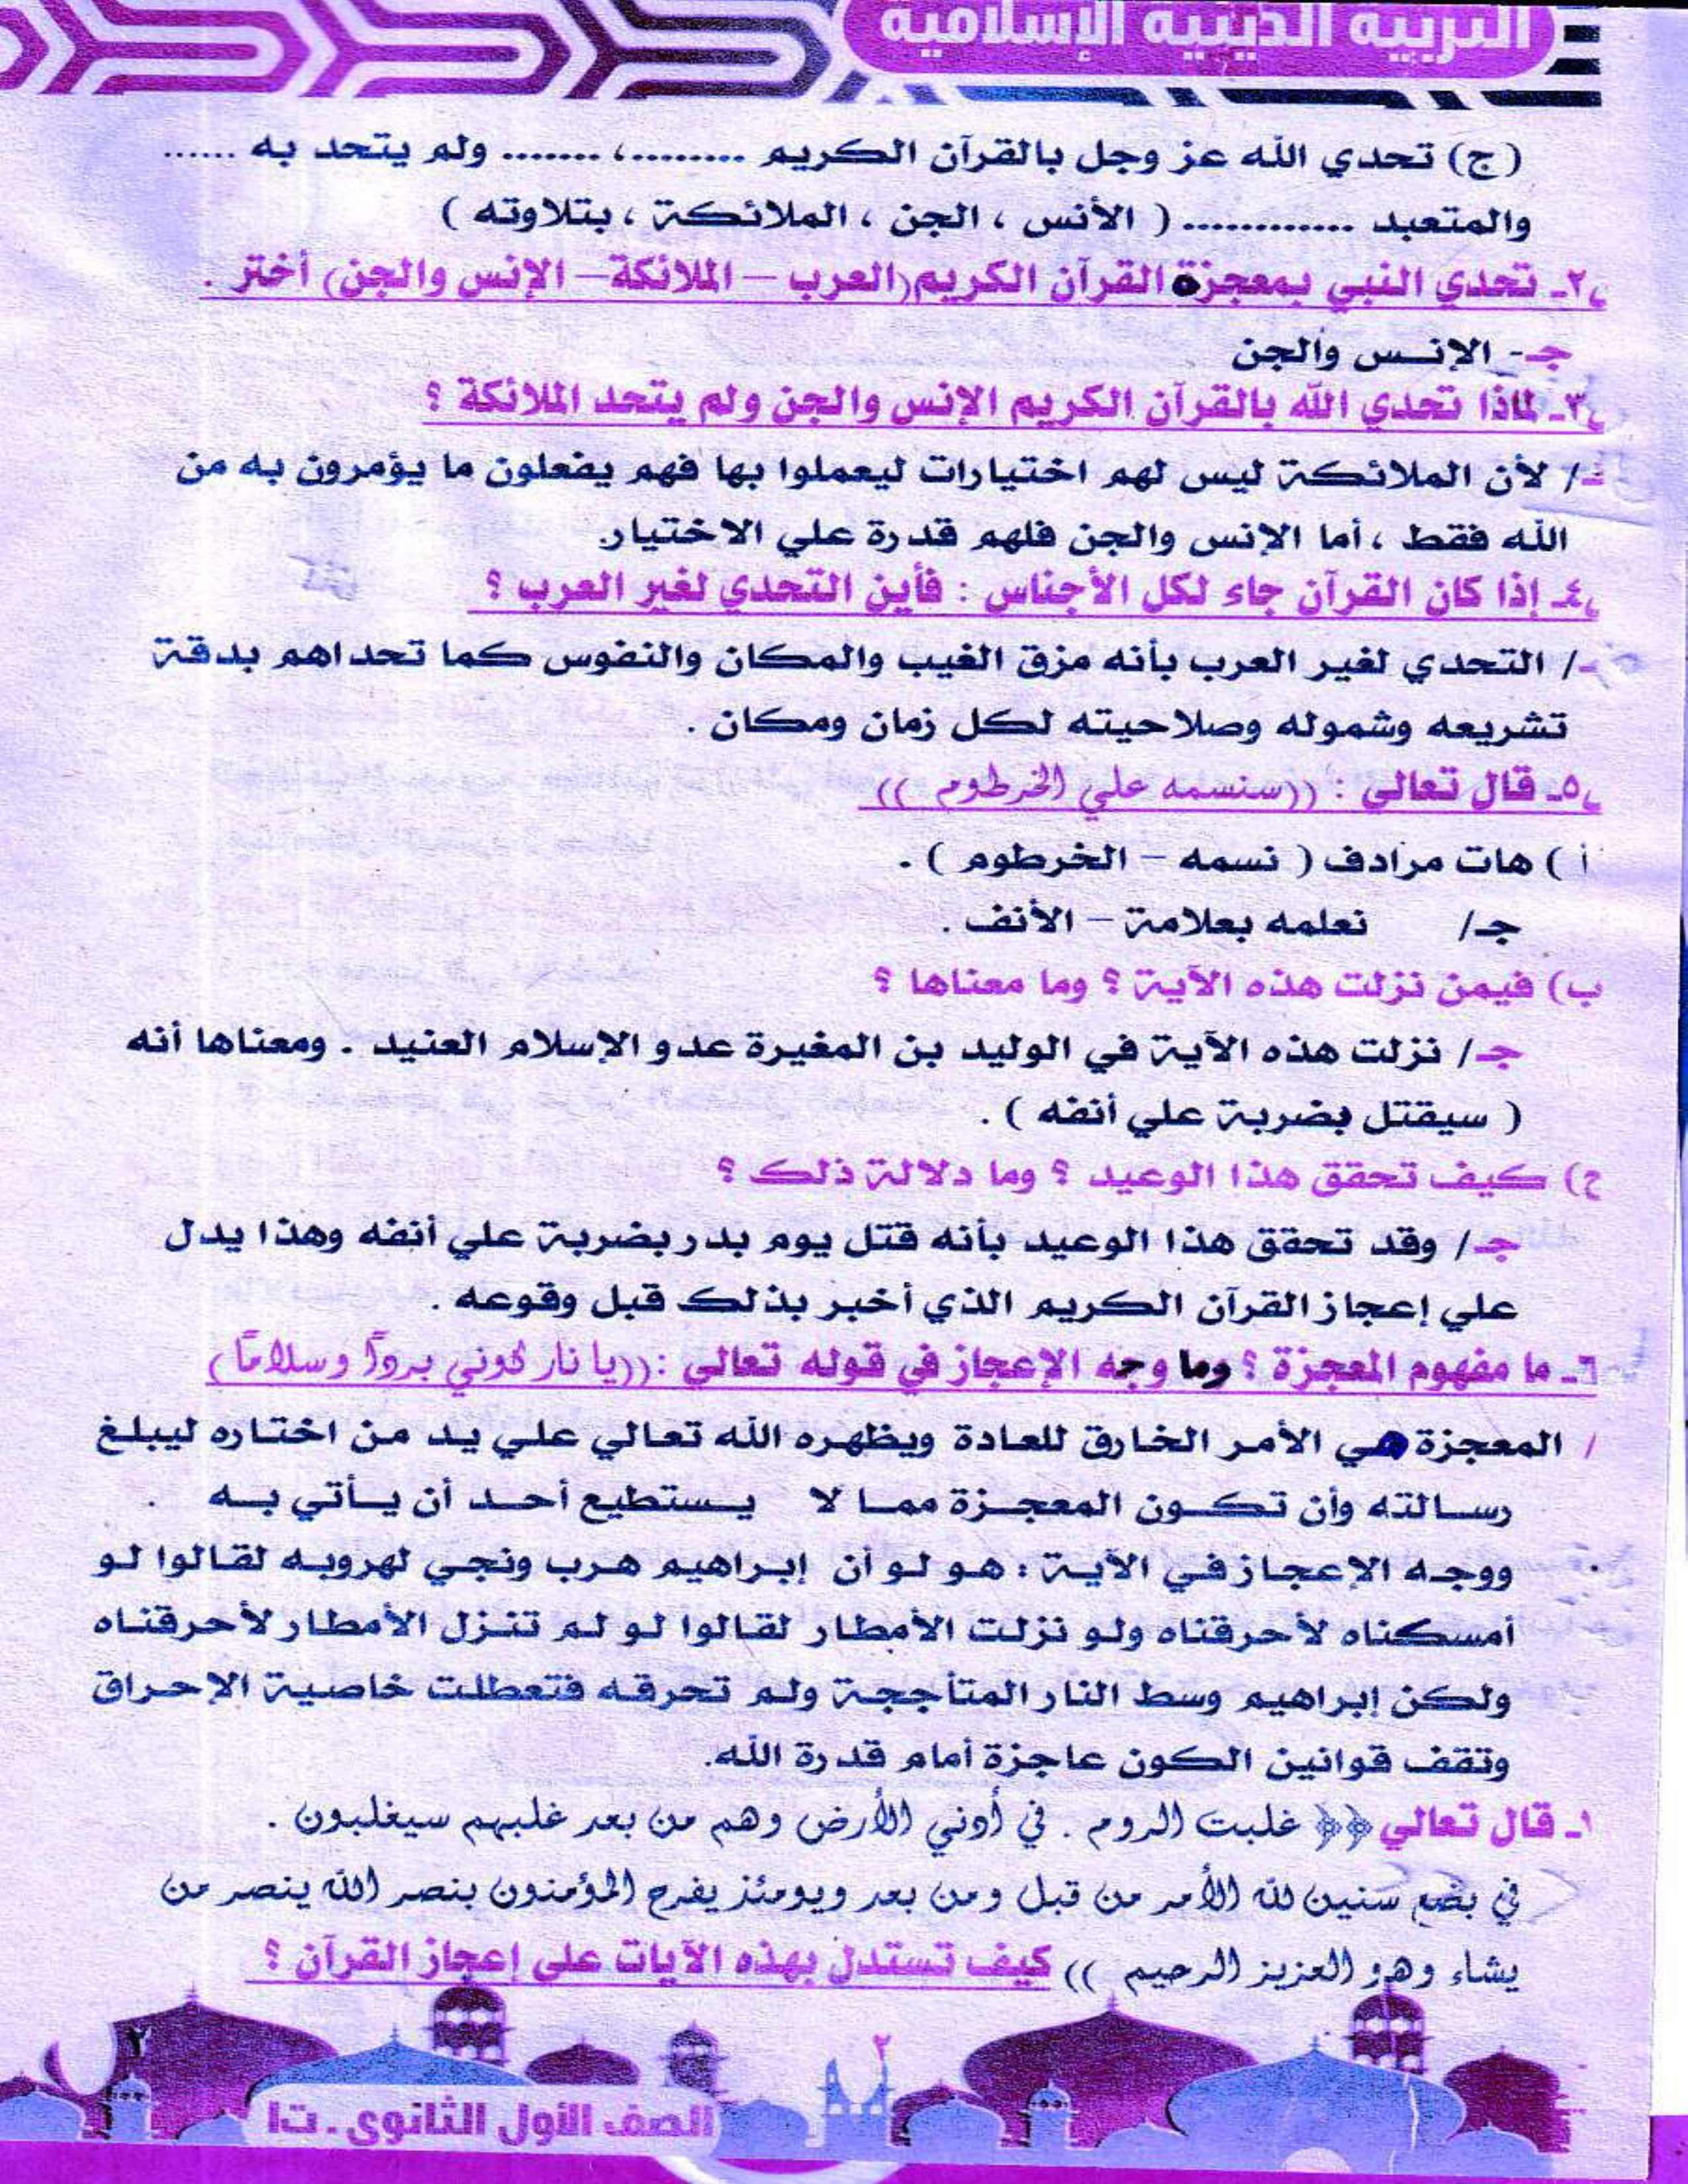 التربية الدينية الإسلامية
(ج) تحدي الله عز وجل بالقرآن الكريم .........، ....... ولم يتحد به ......
والمتعبد ............ ( الأنس ، الجن ، الملائكة ، بتلاوته )
٢ـ تحدي النبي بمعجزة القرآن الكريم (العرب – الملائكة – الإنس والجن) أختر .
جـ- الإنس والجن
٣ـ لماذا تحدي الله بالقرآن الكريم الإنس والجن ولم يتحد الملائكة ؟
جـ/ لأن الملائكة ليس لهم اختيارات ليعملوا بها فهم يفعلون ما يؤمرون به من
الله فقط ، أما الإنس والجن فلهم قدرة علي الاختيار.
٤ـ إذا كان القرآن جاء لكل الأجناس : فأين التحدي لغير العرب ؟
جـ/ التحدي لغير العرب بأنه مزق الغيب والمكان والنفوس كما تحداهم بدقة
تشريعه وشموله وصلاحيته لكل زمان ومكان .
٥ـ قال تعالى : ((سنسمه علي الخرطوم ))
أ ) هات مرادف ( نسمه – الخرطوم ) .
جـ/ نعلمه بعلامة – الأنف .
ب) فيمن نزلت هذه الآية ؟ وما معناها ؟
جـ/ نزلت هذه الآية في الوليد بن المغيرة عدو الإسلام العنيد . ومعناها أنه
( سيقتل بضربة علي أنفه ) .
ح) كيف تحقق هذا الوعيد ؟ وما دلالة ذلك ؟
جـ/ وقد تحقق هذا الوعيد بأنه قتل يوم بدر بضربة علي أنفه وهذا يدل
علي إعجاز القرآن الكريم الذي أخبر بذلك قبل وقوعه .
٦ـ ما مفهوم المعجزة ؟ وما وجه الإعجاز في قوله تعالى :((يا نار كوني بردًا وسلامًا)
/ المعجزة هي الأمر الخارق للعادة ويظهره الله تعالي علي يد من اختاره ليبلغ
رسالته وأن تكون المعجزة مما لا يستطيع أحد أن يأتي به .
ووجه الإعجاز في الآية : هو لو أن إبراهيم هرب ونجي لهروبه لقالوا لو
أمسكناه لأحرقناه ولو نزلت الأمطار لقالوا لو لم تنزل الأمطار لأحرقناه
ولكن إبراهيم وسط النار المتأججة ولم تحرقه فتعطلت خاصية الإحراق
وتقف قوانين الكون عاجزة أمام قدرة الله.
١ـ قال تعالي ﴿﴿ غلبت الروم . في أدني الأرض وهم من بعد غلبهم سيغلبون .
في بضع سنين لله الأمر من قبل ومن بعد ويومئذ يفرح المؤمنون بنصر الله ينصر من
يشاء وهو العزيز الرحيم )) كيف تستدل بهذه الآيات على إعجاز القرآن ؟
٢
٢
الصف الأول الثانوى . ت١